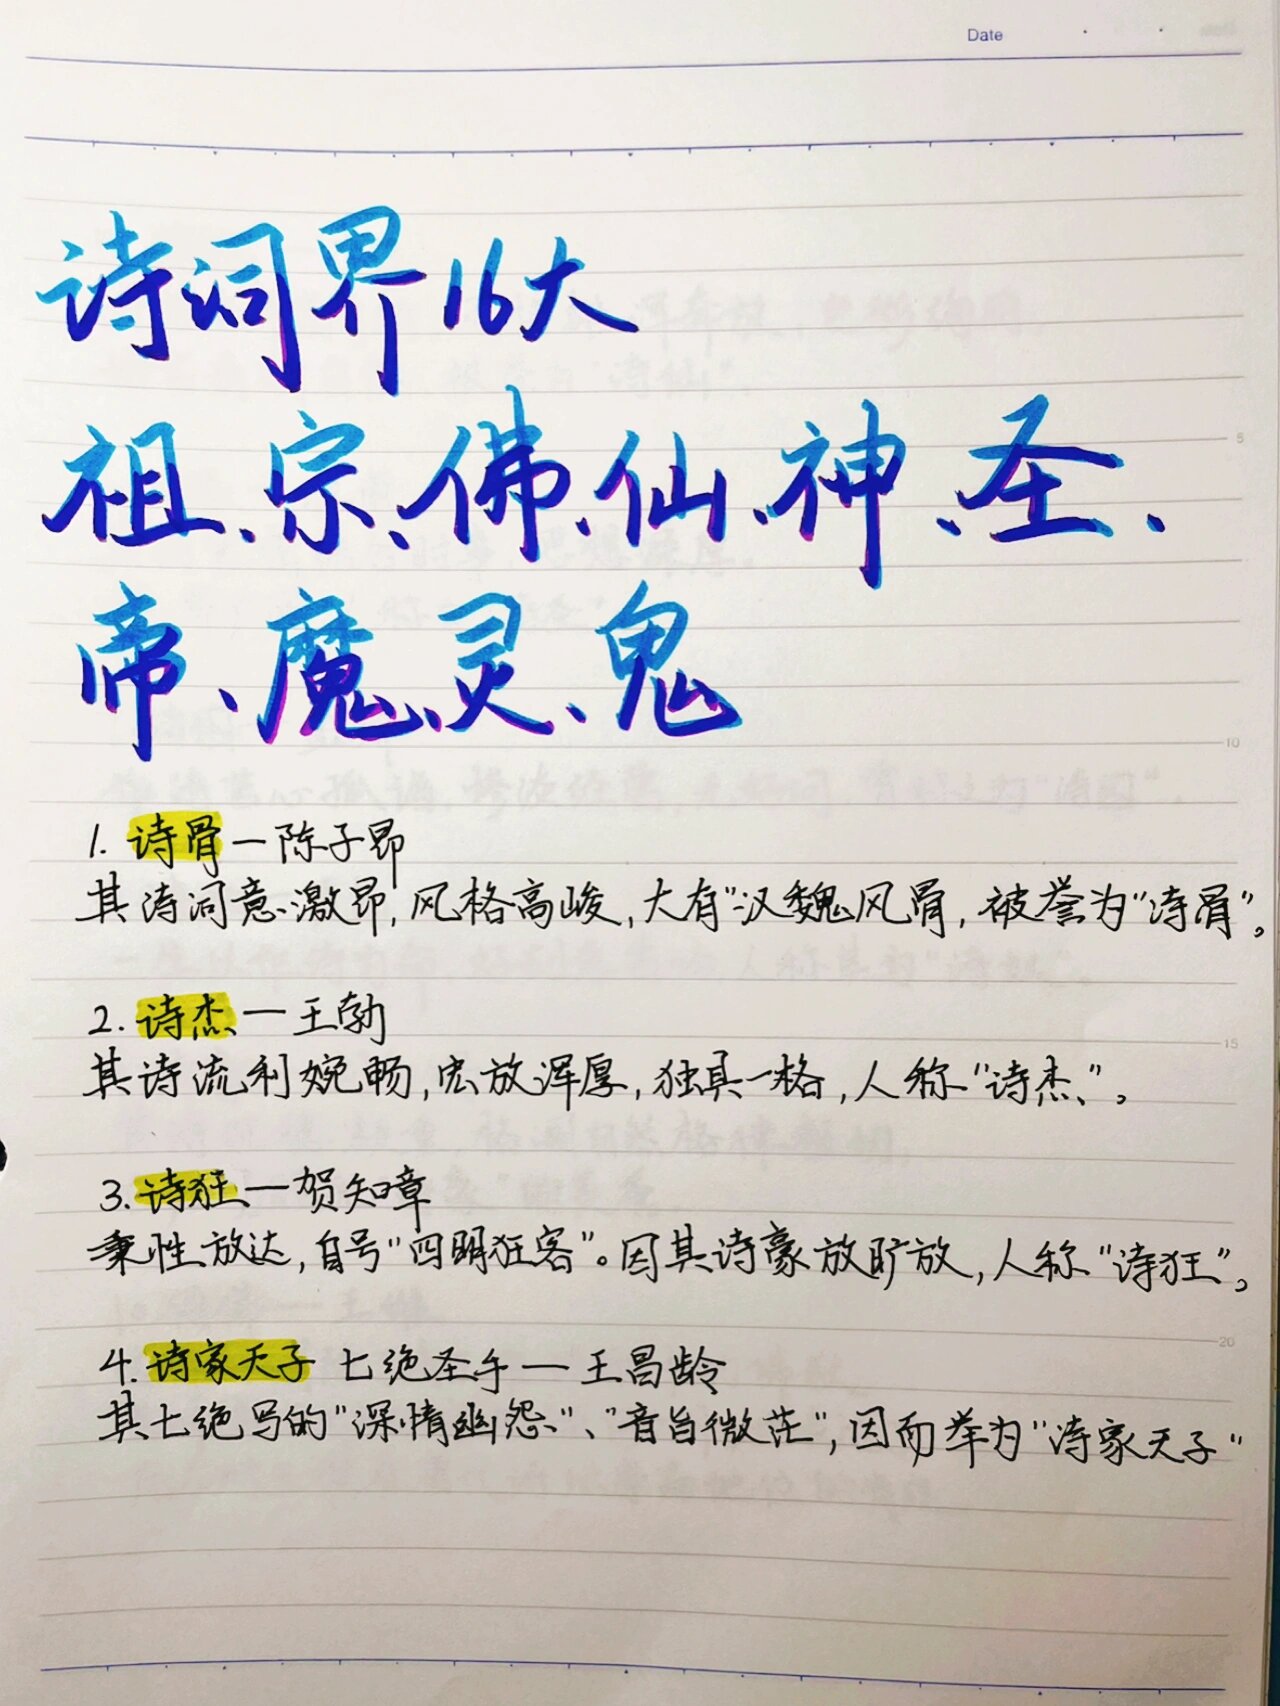 Date
诗词界16大
祖、宗、佛、仙、神、圣、
帝、魔、灵、鬼
5
10
1. 诗骨—陈子昂
其诗词意激昂,风格高峻,大有"汉魏风骨,被誉为"诗骨"。
2. 诗杰—王勃
15
其诗流利婉畅,宏放浑厚,独具一格,人称"诗杰"。
3. 诗狂—贺知章
秉性放达,自号"四明狂客"。因其诗豪放旷放,人称"诗狂"。
20
4. 诗家天子 七绝圣手—王昌龄
其七绝写的"深情幽怨"、"音旨微茫",因而举为"诗家天子"